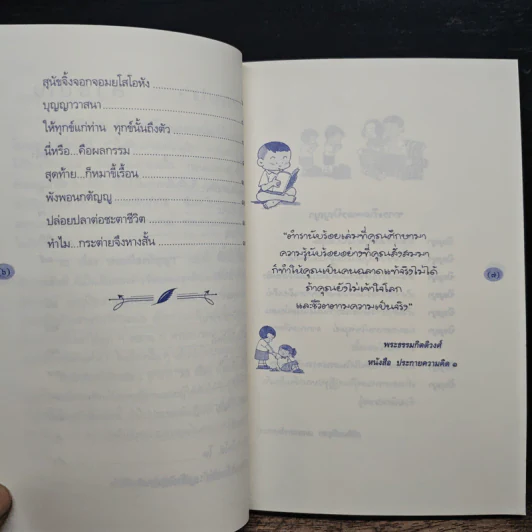 สุนัขจิ้งจอกจอมยโสโอหัง
บุญญาวาสนา
ให้ทุกข์แก่ท่าน ทุกข์นั้นถึงตัว
นี่หรือ...คือผลกรรม
สุดท้าย...ก็หมาขี้เรื้อน
พังพอนกตัญญู
ปล่อยปลาต่อชะตาชีวิต
ทำไม...กระต่ายจึงหางสั้น
"ตำรานับร้อยเล่มที่คุณศึกษามา
ความรู้นับร้อยอย่างที่คุณสั่งสมมา
ก็ทำให้คุณเป็นคนฉลาดแท้จริงไม่ได้
ถ้าคุณยังไม่เข้าใจโลก
และชีวิตตามความเป็นจริง"
พระธรรมกิตติวงศ์
หนังสือ ประกายความคิด ๑